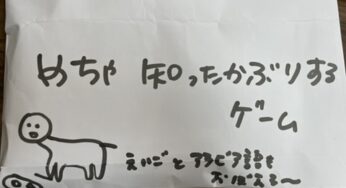 めちゃ 知ったかぶりする
ゲーム
えいごとアラビア語を
おぼえる〜